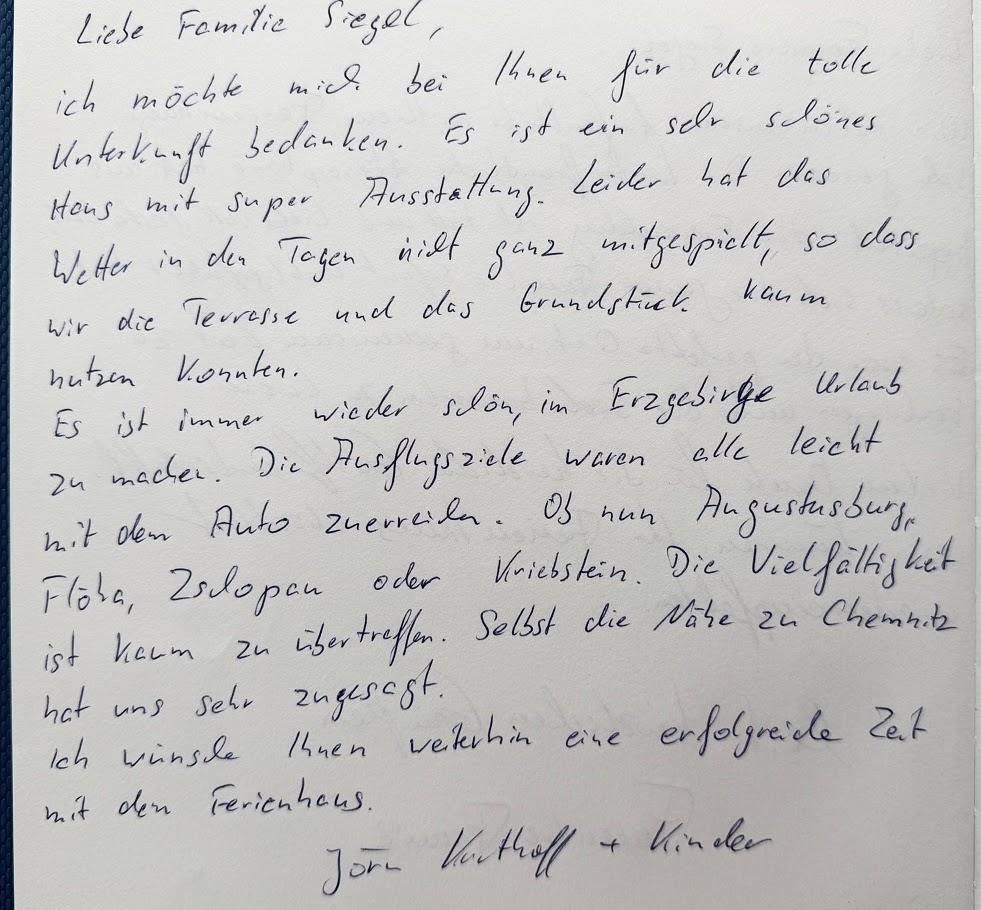 Liebe Familie Siegel,
ich möchte mich bei Ihnen für die tolle
Unterkunft bedanken. Es ist ein sehr schönes
Haus mit super Ausstattung. Leider hat das
Wetter in den Tagen nicht ganz mitgespielt, so dass
wir die Terrasse und das Grundstück kaum
nutzen konnten.
Es ist immer wieder schön, im Erzgebirge Urlaub
zu machen. Die Ausflugsziele waren alle leicht
mit dem Auto zuerreichen. Ob nun Augustusburg,
Flöha, Zschopau oder Kriebstein. Die Vielfältigkeit
ist kaum zu übertreffen. Selbst die Nähe zu Chemnitz
hat uns sehr zugesagt.
Ich wünsche Ihnen weiterhin eine erfolgreiche Zeit
mit dem Ferienhaus.
Jörn + Kinder